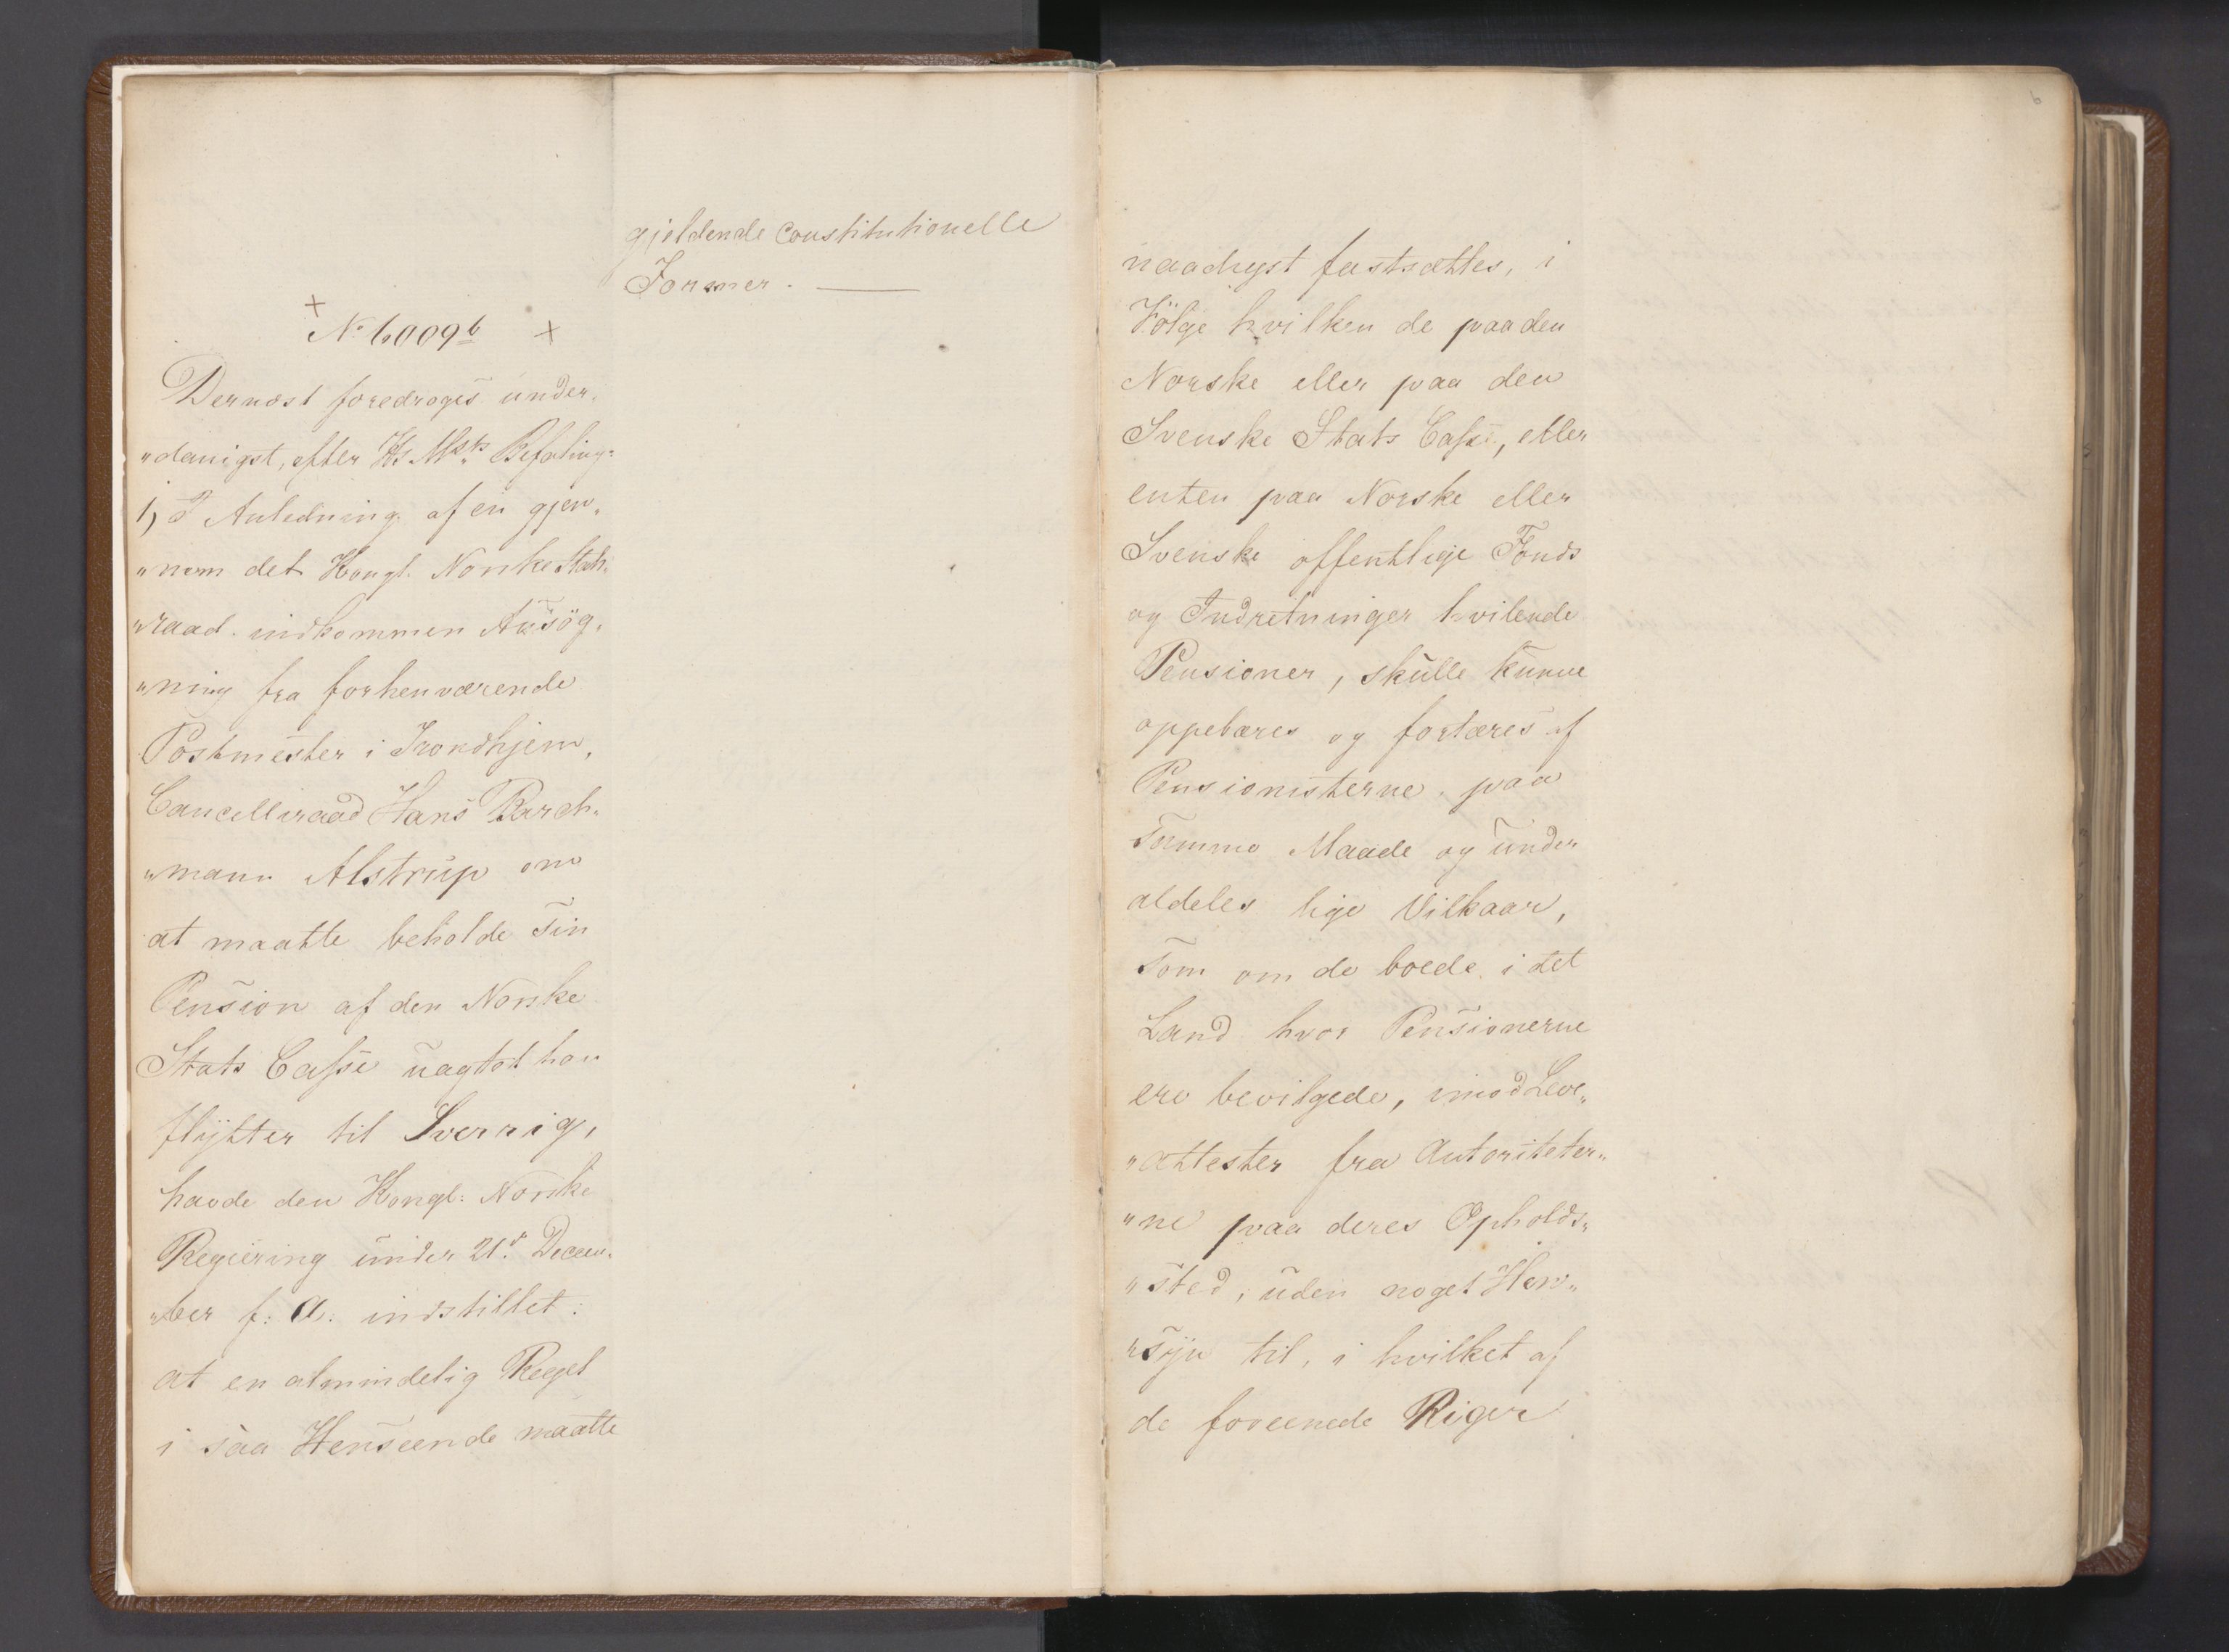 gjeldende constitutionelle
Former. —
+
No 6009b +
Dernæst foredroges under„
„danigst, efter Hs Msts Befaling:
1) I Anledning af en gjen„
„nem det Kongl. Norske Stats„
„raad indkommen Ansög„
„ning fra forhenværende
Postmester i Trondhjem,
Cancelliraad Hans Barch„
„mann Alstrup om
at maatte beholde sin
Pension af den Norske
Stats Casse uagtet han
flÿtter til Sverrig,
havde den Kongl: Norske
Regiering under 21d Decem„
„ber f: A: indstillet:
at en almindelig Regel
i saa Henseende maatte
6
naadigst fastsættes, i
Fölge hvilken de paa den
Norske eller paa den
Svenske Stats Casse, eller
enten paa Norske eller
Svenske offentlige Fonds
og Indretninger hvilende
Pensioner, skulle kunne
oppebæres og fortæres af
Pensionisterne paa
samme Maade og under
aldeles lige Vilkaar,
som om de boede i det
Land hvor Pensionerne
ere bevilgede, imod Leve„
„attester fra Autoriteter„
„ne paa deres Opholds„
„sted, uden noget Hen„
„sÿn til, i hvilket af
de foreenede Riger